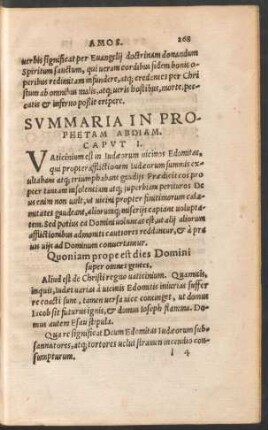 AMOS. 268
uerbis significat per Euangelij doctrinam donandum
Spiritum sanctum, qui ueram cordibus fidem bonis o-
peribus redimitam infundere, atq; credentes per Chri
stum ab omnibus malis, atq; ueris hostibus, morte, pec-
catis & inferno possit eripere.
SVMMARIA IN PRO-
PHETAM ABDIAM.
CAPVT I.
VAticinium est in Iudæorum uicinos Edomitas,
qui propter afflictionem Iudæorum summis ex
ultabant atq; triumphabant gaudijs Prædicit eos pro
pter tantam insolentiam atq; superbiam perituros De
us enim non uult, ut uicini propter finitimorum cala-
mitates gaudeant, aliorumq; miserijs capiant uolupta-
tem. Sed potius ea Domini uoluntas est, ut alij aliorum
afflictionibus admoniti cautiores reddantur, & à pra
uis uijs ad Dominum conuertantur.
Quoniam prope est dies Domini
super omnes gentes.
Aliud est de Christi regno uaticinium. Quamuis,
inquit, Iudæi uarias à uicinis Edomitis iniurias suffer
re coacti sunt, tamen uersa uice continget, ut domus
Iacob sit futurus ignis, & domus Ioseph flamma. Do-
mus autem Esau stipula.
Qua re significat Deum Edomitas Iudæorum sub-
sannatores, atq; tortores ueluti stramen incendio con-
sumpturum.
i 4